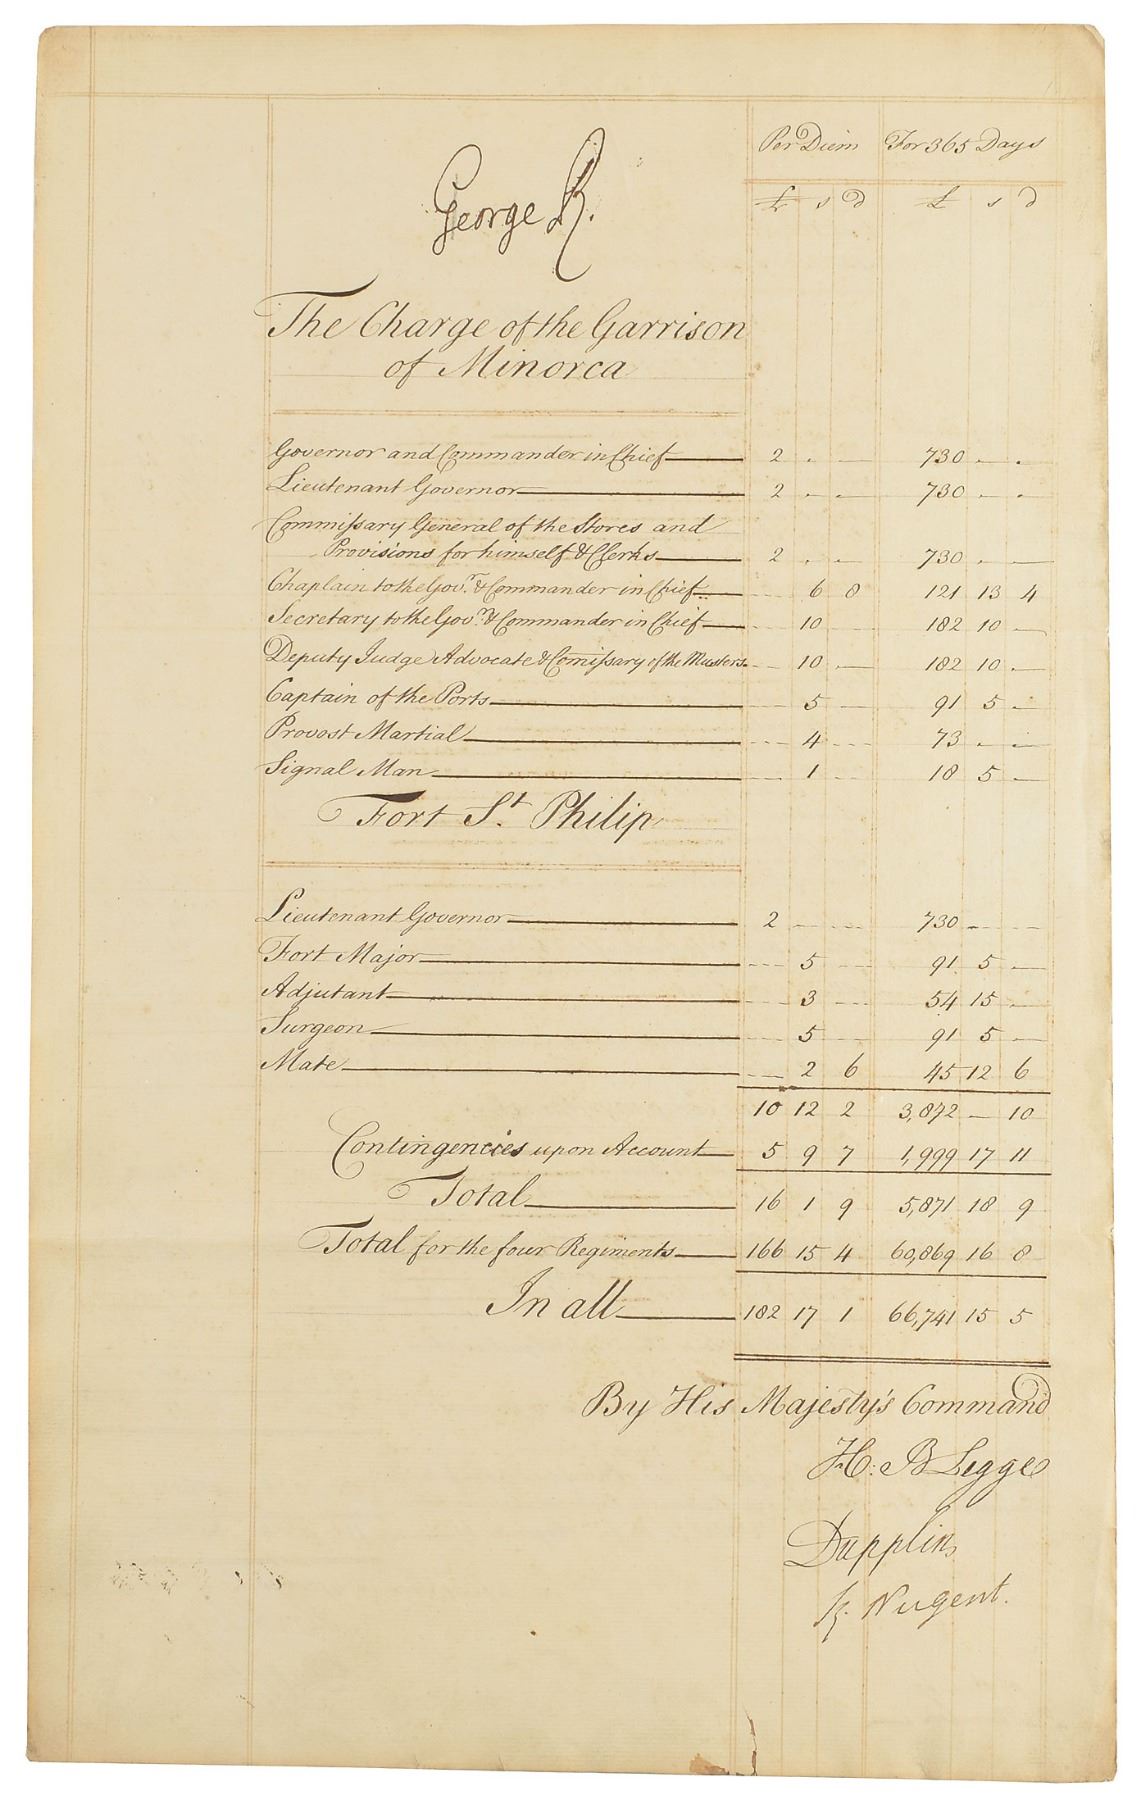 Per Diem For 365 Days
£ s d £ s d
George R.
The Charge of the Garrison
of Minorca
Governor and Commander in Chief 2 . — 730 — .
Lieutenant Governor 2 . . 730 . .
Commissary General of the Stores and
Provisions for himself & Clerks 2 . — 730 . —
Chaplain to the Govr. & Commander in Chief — 6 8 121 13 4
Secretary to the Govr. & Commander in Chief — 10 — 182 10 —
Deputy Judge Advocate & Comissary of the Musters — 10 — 182 10 —
Captain of the Ports — 5 — 91 5 —
Provost Martial — 4 — 73 . .
Signal Man — 1 — 18 5 —
Fort St. Philip
Lieutenant Governor 2 — — 730 — —
Fort Major — 5 — 91 5 —
Adjutant — 3 — 54 15 —
Surgeon — 5 — 91 5 —
Mate — 2 6 45 12 6
10 12 2 3,872 — 10
Contingencies upon Account 5 9 7 1,999 17 11
Total 16 1 9 5,871 18 9
Total for the four Regiments 166 15 4 60,869 16 8
In all 182 17 1 66,741 15 5
By His Majesty's Command
H: B Legge
Dupplin
R. Nugent.